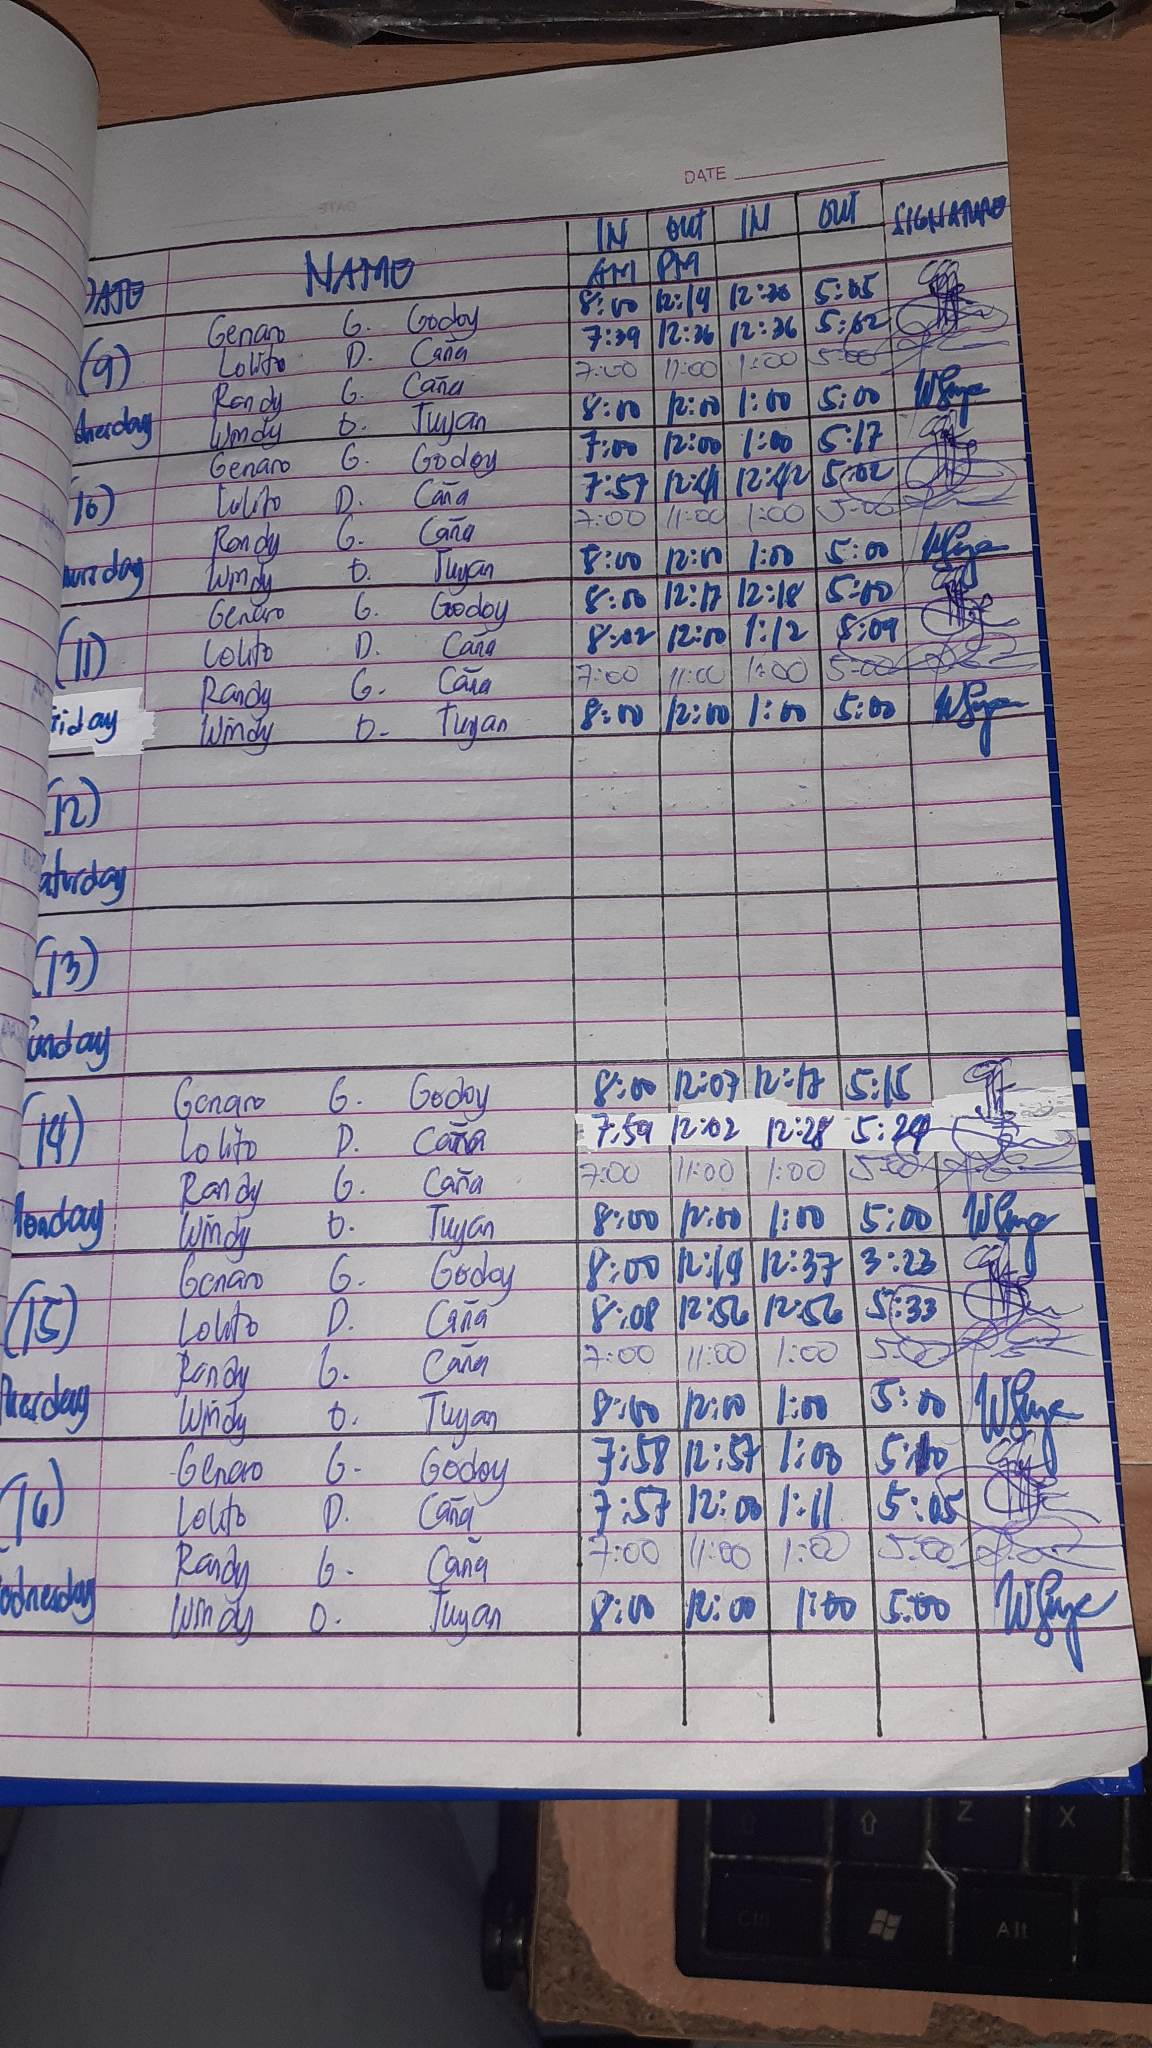 DATE
IN OUT IN OUT SIGNATURE
DATE NAME AM PM
(9) Genaro G. Godoy 8:00 12:19 12:20 5:05
Lolito D. Caña 7:39 12:36 12:36 5:02
Randy G. Caña 7:00 11:00 1:00 5:00
Windy D. Tuyan 8:00 12:00 1:00 5:00
Genaro G. Godoy 7:00 12:00 1:00 5:17
10) Lolito D. Caña 7:57 12:41 12:42 5:02
Randy G. Caña 7:00 11:00 1:00 5:00
Windy D. Tuyan 8:00 12:00 1:00 5:00
Genaro G. Godoy 8:00 12:17 12:18 5:00
(11) Lolito D. Caña 8:02 12:00 1:12 5:09
Randy G. Caña 7:00 11:00 1:00 5:00
riday Windy D. Tuyan 8:00 12:00 1:00 5:00
(12)
aturday
(13)
unday
(14) Genaro G. Godoy 8:00 12:07 12:17 5:15
Lolito D. Caña 7:59 12:02 12:28 5:24
Randy G. Caña 7:00 11:00 1:00 5:00
onday Windy D. Tuyan 8:00 12:00 1:00 5:00
(15) Genaro G. Godoy 8:00 12:19 12:37 3:23
Lolito D. Caña 8:08 12:56 12:56 5:33
Randy G. Caña 7:00 11:00 1:00 5:00
uesday Windy D. Tuyan 8:00 12:00 1:00 5:00
Genaro G. Godoy 7:58 12:57 1:00 5:10
16) Lolito D. Caña 7:57 12:00 1:11 5:05
Randy G. Caña 7:00 11:00 1:00 5:00
ednesday Windy D. Tuyan 8:00 12:00 1:00 5:00
Z X
Ctrl Alt